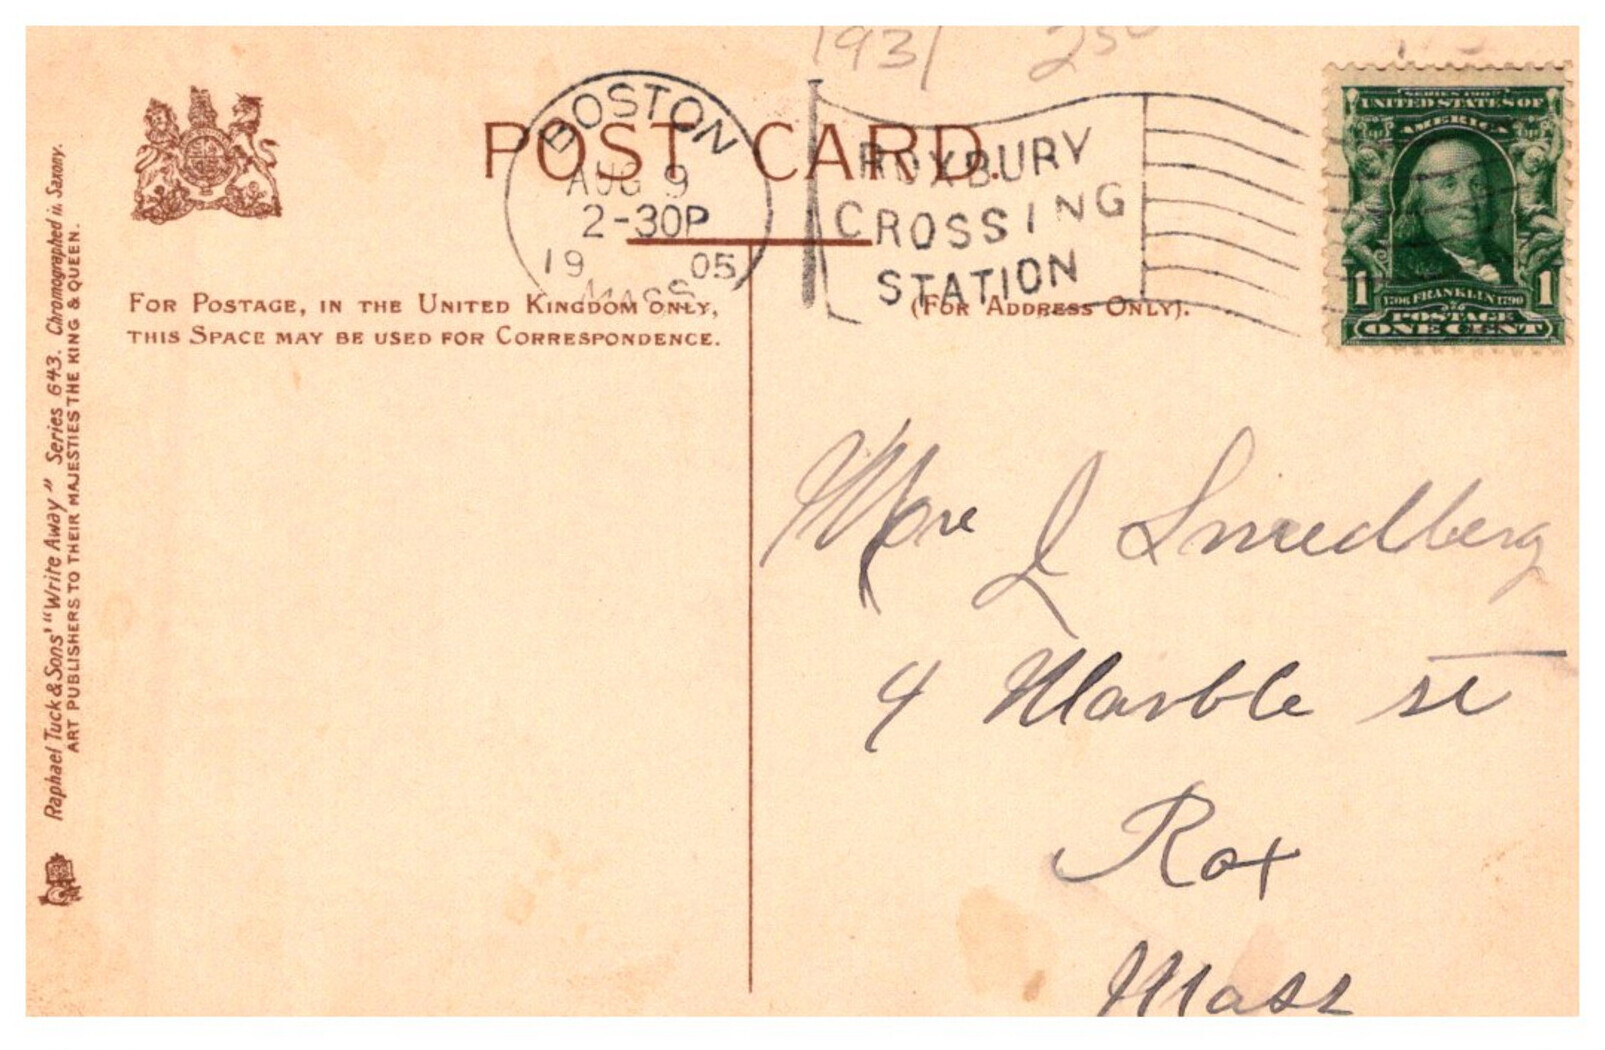 1931 250
POST CARD.
BOSTON
AUG 9
2-30P
19 05
MASS.
ROXBURY
CROSSING
STATION
SERIES 1902
UNITED STATES OF
AMERICA
1706 FRANKLIN 1790
1 1
POSTAGE
ONE CENT
FOR POSTAGE, IN THE UNITED KINGDOM ONLY,
THIS SPACE MAY BE USED FOR CORRESPONDENCE.
(FOR ADDRESS ONLY).
Raphael Tuck & Sons' "Write Away" Series 643. Chromographed in Saxony.
ART PUBLISHERS TO THEIR MAJESTIES THE KING & QUEEN.
J Smedberg
4 Marble st
Rox
Mass